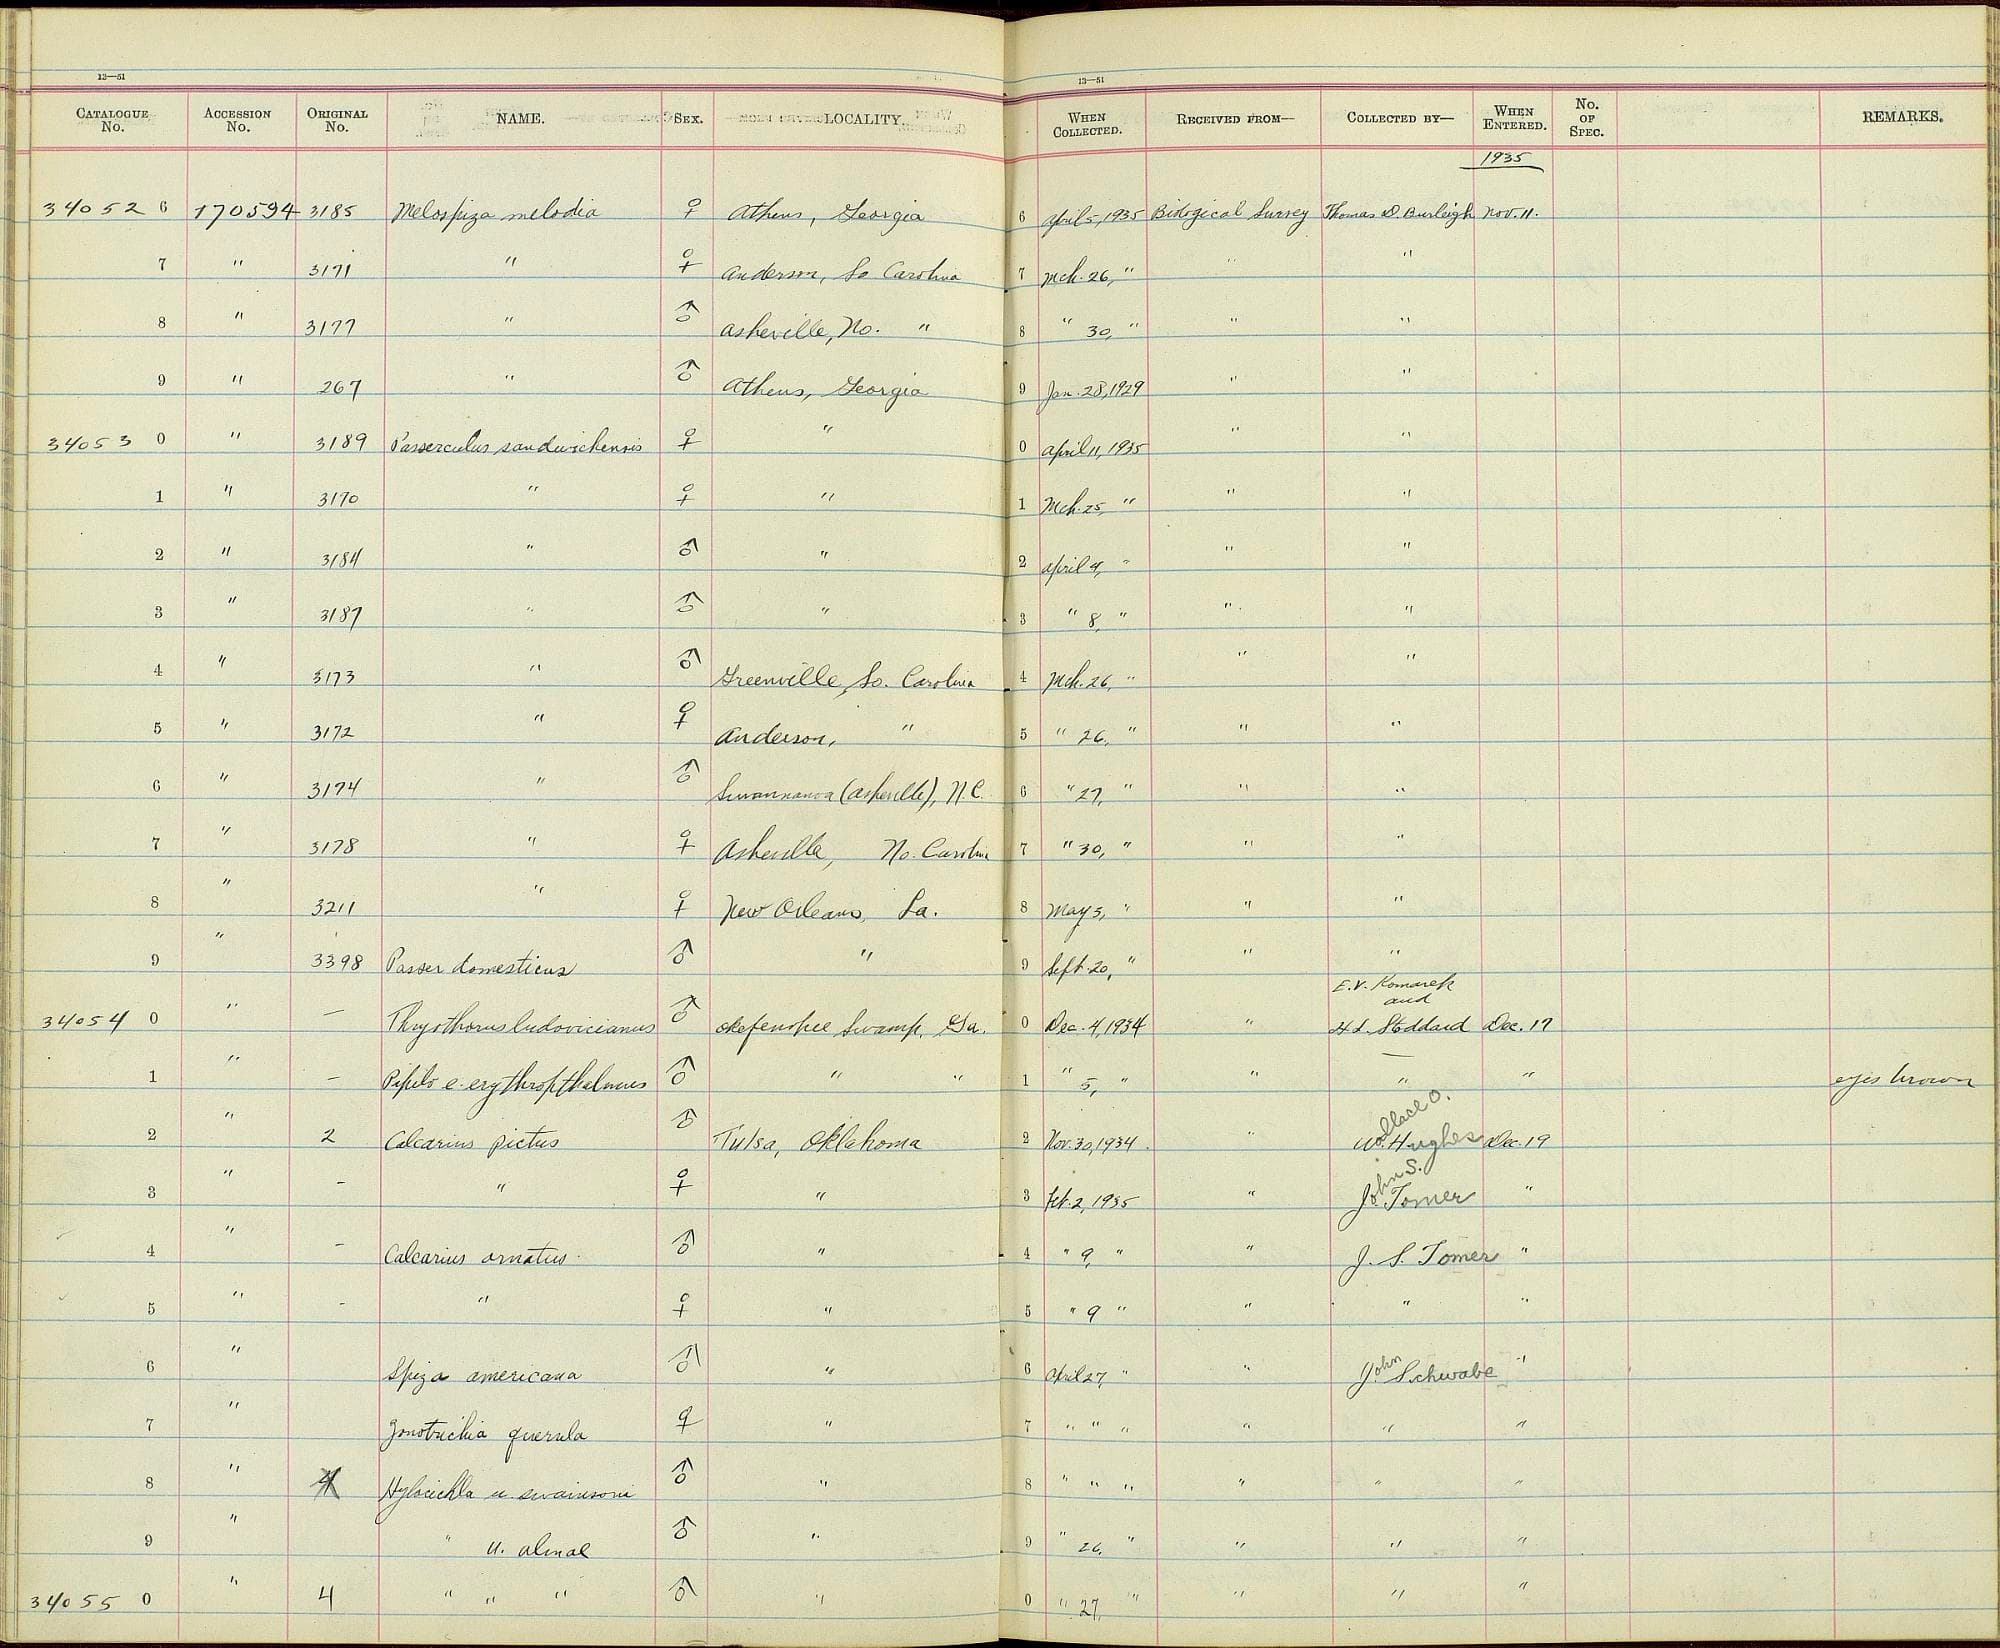 13—51 13—51
CATALOGUE No. ACCESSION No. ORIGINAL No. NAME. SEX. LOCALITY. WHEN COLLECTED. RECEIVED FROM— COLLECTED BY— WHEN ENTERED. No. OF SPEC. REMARKS.
1935
34052 6 170594 3185 Melospiza melodia ♀ Athens, Georgia 6 April 5, 1935 Biological Survey Thomas D. Burleigh Nov. 11.
7 " 3171 " ♀ Anderson, So Carolina 7 Mch. 26, " " "
8 " 3177 " ♂ Asheville, No. " 8 " 30, " " "
9 " 267 " ♂ Athens, Georgia 9 Jan. 28, 1929 " "
34053 0 " 3189 Passerculus sandwichensis ♀ " 0 April 11, 1935 " "
1 " 3170 " ♀ " 1 Mch. 25, " " "
2 " 3184 " ♂ " 2 April 4, " " "
3 " 3187 " ♂ " 3 " 8, " " "
4 " 3173 " ♂ Greenville, So. Carolina 4 Mch. 26, " " "
5 " 3172 " ♀ Anderson, " 5 " 26, " " "
6 " 3174 " ♂ Swannanoa (Asheville), N.C. 6 " 27, " " "
7 " 3178 " ♀ Asheville, No. Carolina 7 " 30, " " "
8 " 3211 " ♀ New Orleans, La. 8 May 3, " " "
9 " 3398 Passer domesticus ♂ " 9 Sept. 20, " " "
E.V. Komarek and
34054 0 " — Thryothorus ludovicianus ♂ Okefenokee Swamp, Ga. 0 Dec. 4, 1934 " H L. Stoddard Dec. 17
1 " — Pipilo e. erythrophthalmus ♂ " " 1 " 5, " " " " eyes brown
2 " 2 Calcarius pictus ♂ Tulsa, Oklahoma 2 Nov. 30, 1934 " Wallace O. Hughes Dec. 19
3 " - " ♀ " 3 Feb. 2, 1935 " John S. Tomer "
4 " - Calcarius ornatus ♂ " 4 " 9, " " J. S. Tomer "
5 " - " ♀ " 5 " 9 " " " "
6 " Spiza americana ♂ " 6 April 27, " " John Schwabe "
7 " Zonotrichia querula ♀ " 7 " " " " " "
8 " 4 Hylocichla u. swainsoni ♂ " 8 " " " " " "
9 " " u. almae ♂ " 9 " 26, " " " "
34055 0 " 4 " " " ♂ " 0 " 27, " " " "